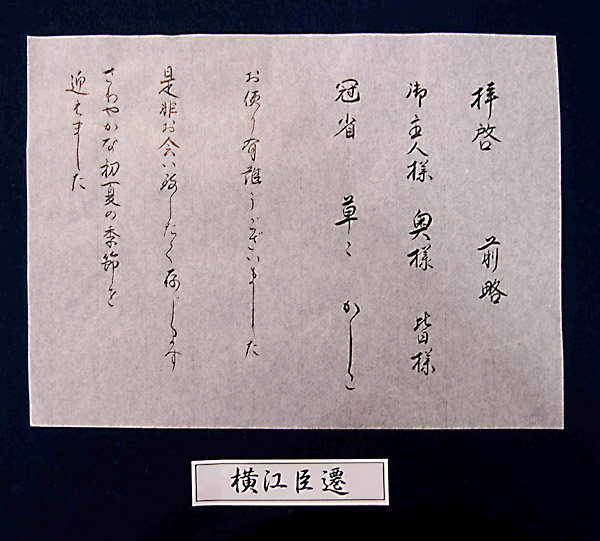 拝啓　前略
御主人様　奥様　皆様
冠省　草々　かしこ
お便り有難うございました
是非お会い致したく存じます
さわやかな初夏の季節を
迎えました
横江臣遷